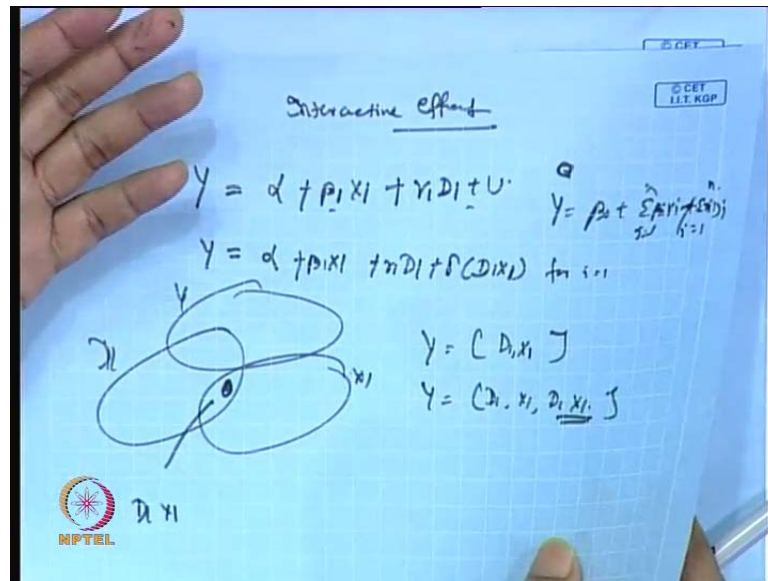 © CET
© CET
I.I.T. KGP
Interactive effect
Y = α + β1 X1 + γ1 D1 + U
Y = β0 +
Y = α + β1 X1 + γ1 D1 + δ(D1X1) for i=1
Y
X1
Y = [ D1, X1 ]
Y = [D1, X1, D1 X1. ]
D1 X1
NPTEL